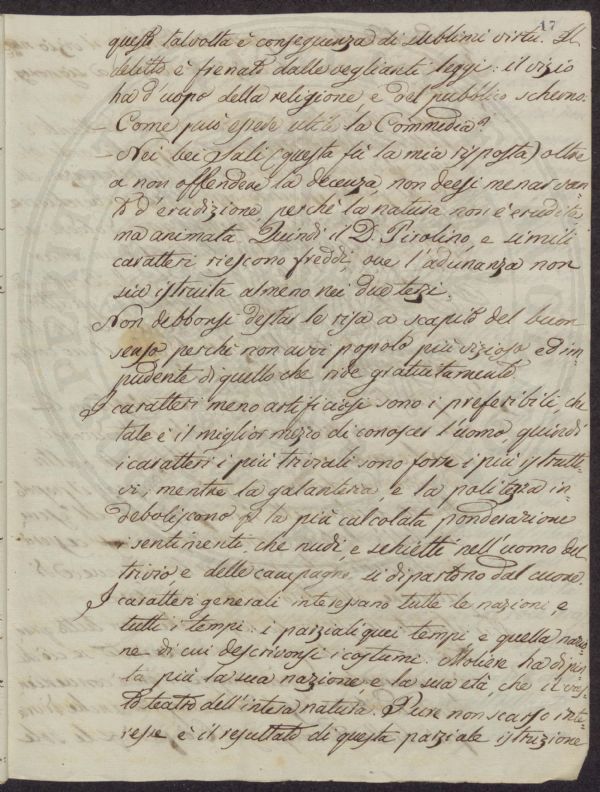 17
questo talvolta è conseguenza di sublimi virtù. Il
delitto è frenato dalle veglianti leggi: il vizio
ha d'uopo della religione, e del pubblico scherno.
– Come può essere utile la Commedia?
– Nei bei Sali (questa fù la mia risposta) oltre
a non offendere la decenza non deesi menar van-
to d'erudizione, perchè la natura non è erudita,
ma animata. Quindi il D. Pirolino, e simili
caratteri riescono freddi, ove l'adunanza non
sia istruita almeno nei due terzi.
Non debbonsi destar le risa a scapito del buon
senso perchè non avvi popolo più vizioso ed im-
pudente di quello che ride gratuitamente
I caratteri meno artificiosi sono i preferibili, che
tale è il miglior mezzo di conoscer l'uomo, quindi
i caratteri i più triviali sono forse i più istrutti-
vi, mentre la galanteria, e la politezza in-
deboliscono la più calcolata ponderazione
i sentimenti, che nudi, e schietti nell'uomo del
trivio, e delle campagne, si dipartono dal cuore.
I caratteri generali interessano tutte le nazioni e
tutti i tempi: i parziali quei tempi e quella nazio-
ne di cui descrivonsi i costumi. Moliere ha dipin-
ta più la sua nazione, e la sua età, che il vas-
to teatro dell'intera natura. Pure non scarso inte-
resse è il resultato di questa parziale istruzione